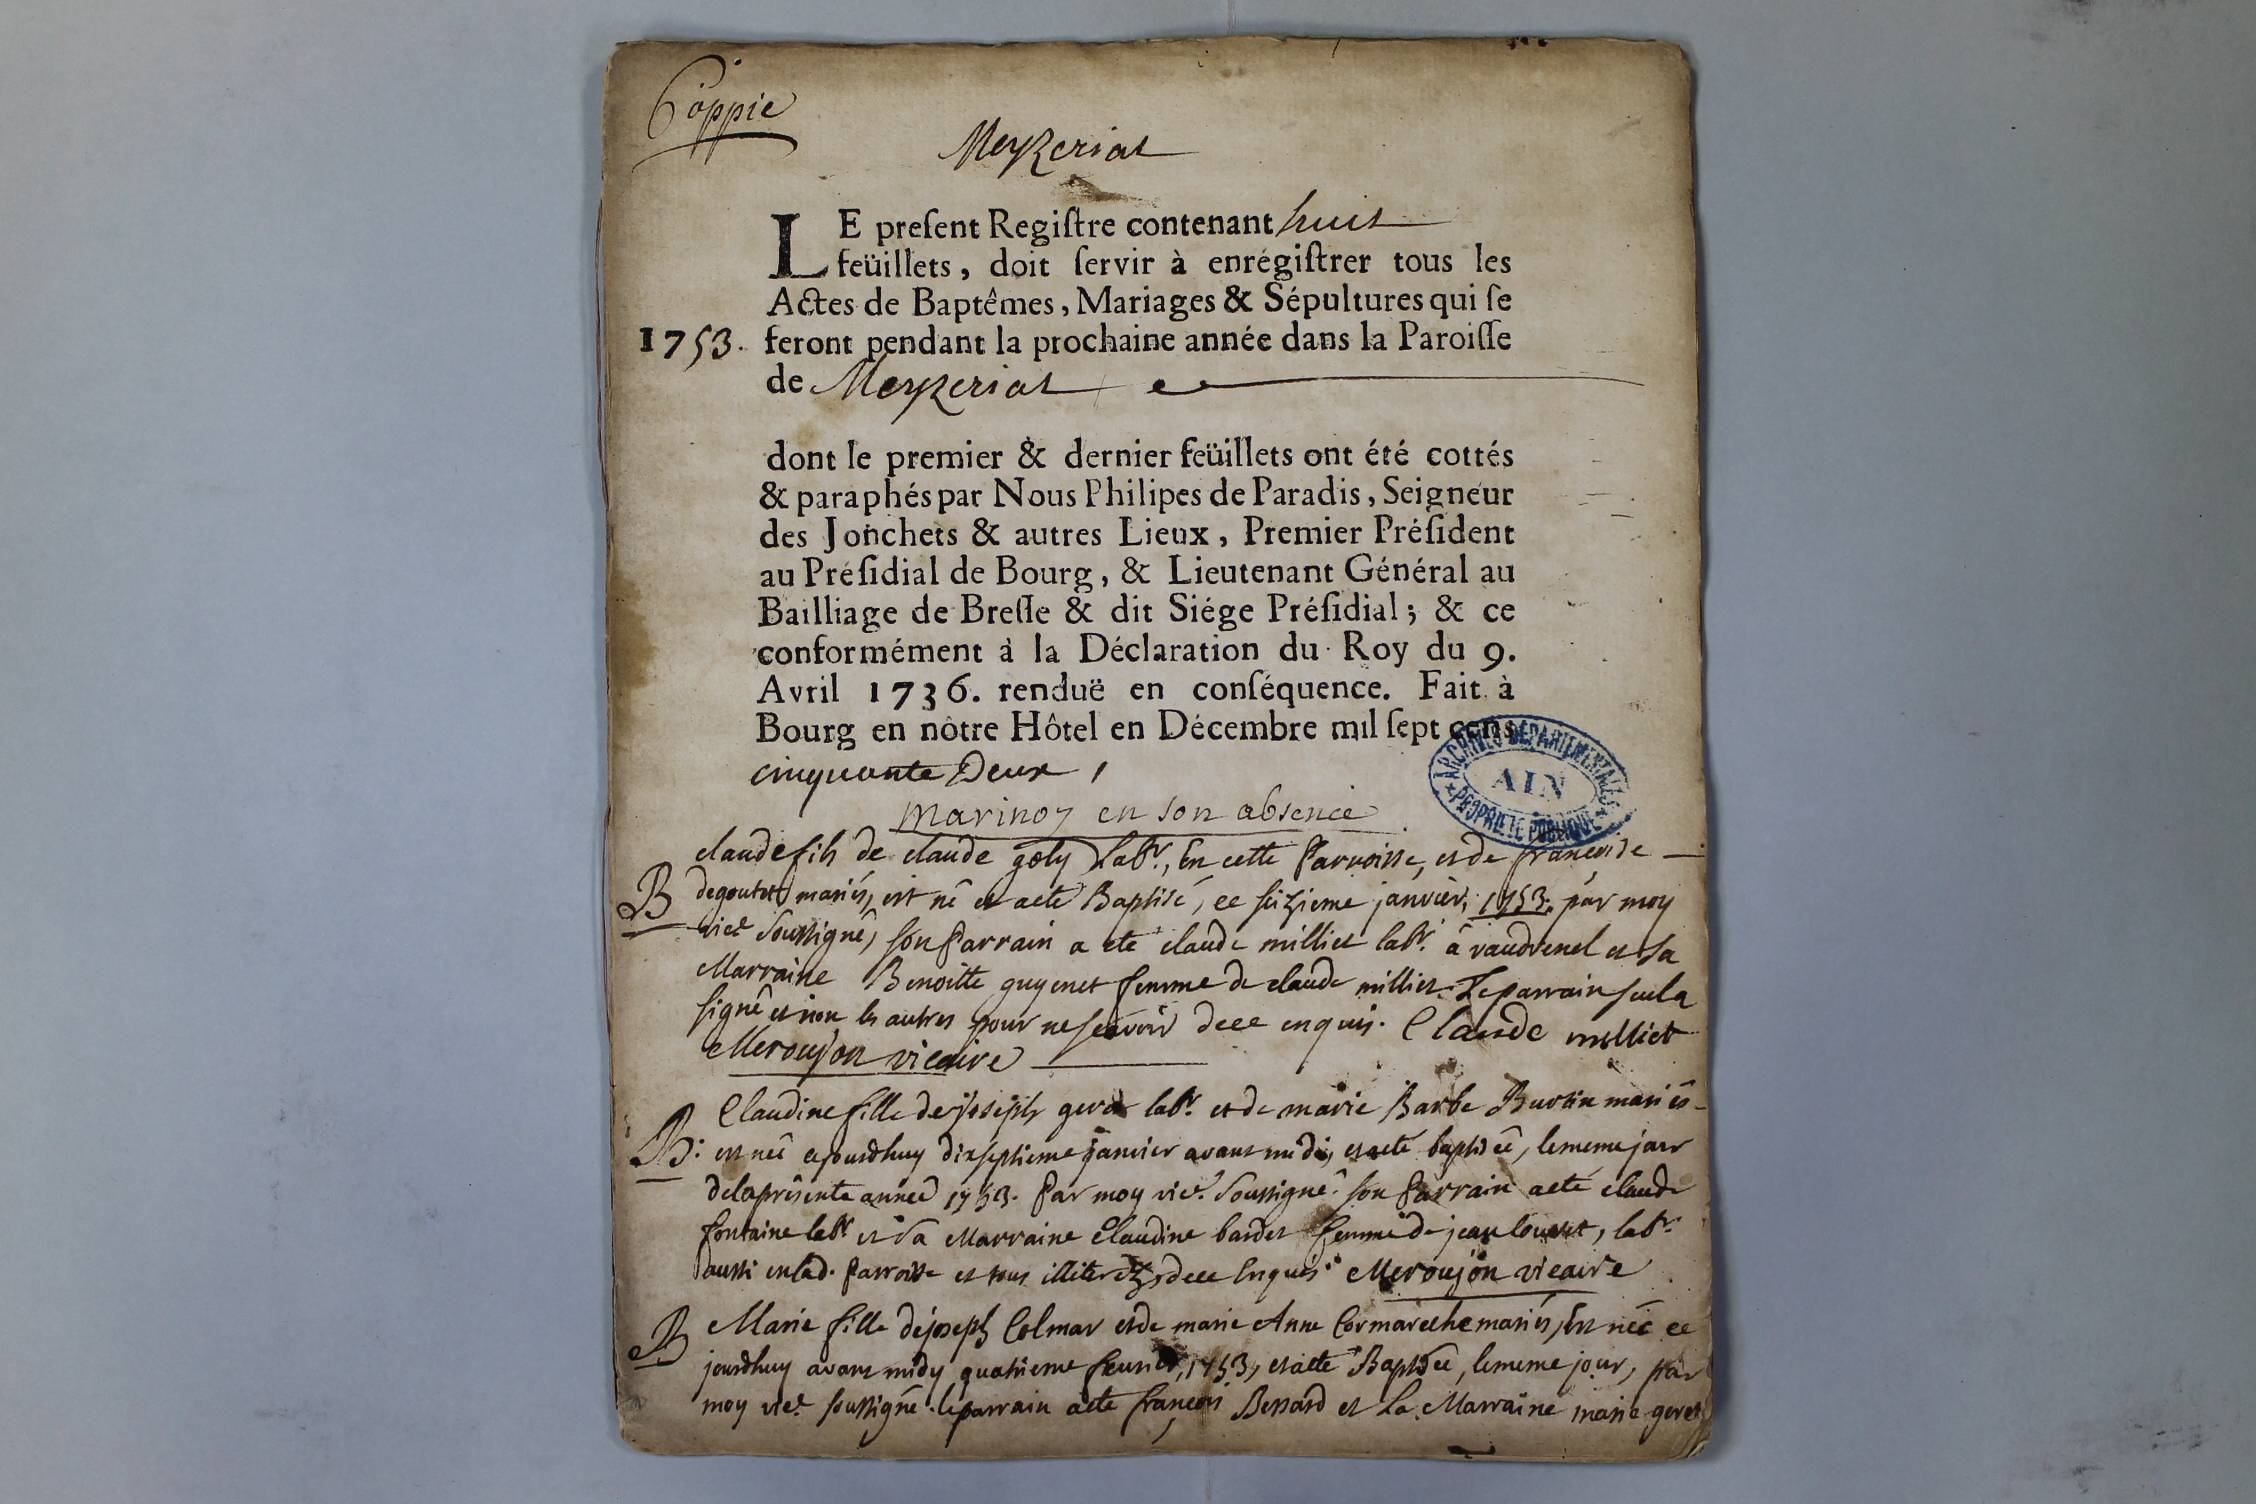 Coppie
Meyzeriat
LE preſent Regiſtre contenant huit
feüillets, doit ſervir à enrégiſtrer tous les
Actes de Baptêmes, Mariages & Sépultures qui ſe
1753. feront pendant la prochaine année dans la Paroiſſe
de Meyzeriat
dont le premier & dernier feüillets ont été cottés
& paraphés par Nous Philipes de Paradis, Seigneur
des Jonchets & autres Lieux, Premier Préſident
au Préſidial de Bourg, & Lieutenant Général au
Bailliage de Breſſe & dit Siége Préſidial; & ce
conformément à la Déclaration du Roy du 9.
Avril 1736. renduë en conſéquence. Fait à
Bourg en nôtre Hôtel en Décembre mil ſept cens
cinquante Deux,
ARCHIVES DEPARTEMENTALES
AIN
PROPRIETE PUBLIQUE
Marinoz en son absence
claude fils de claude goly labr. En cette Parroisse, et de françoise
B degoutet mariés, est né et a eté Baptisé, ce seizieme janvier, 1753. par moy
vicr. Soussigné, son Parrain a eté claude milliet labr. à vaudrenel et sa
Marraine Benoitte guyenet femme de claude milliet. Le parrain seul a
signé et non les autres pour ne sçavoir de ce enquis. Claude milliet
Meroujon vicaire
Claudine fille de joseph geret labr. et de marie Barbe Burtin mariés
B: est née ajourdhuy dixseptieme janvier avant midi, et a eté baptisée, le meme jour
de la présente année 1753. Par moy vicr. Soussigné. son Parrain a eté claude
fontaine labr. et sa Marraine Claudine bardet femme de jean louvet, labr.
aussi en lad. Parroisse et tous illiterez, de ce Enquis. Meroujon vicaire
B Marie fille de joseph Colmar et de marie Anne Cormareche mariés, Est née ce
jourdhuy avant midy quatrieme fevrier, 1753, et a eté Baptisée, le meme jour, par
moy vicr. soussigné. le parrain a eté françois Bessard et La Marraine marie geret